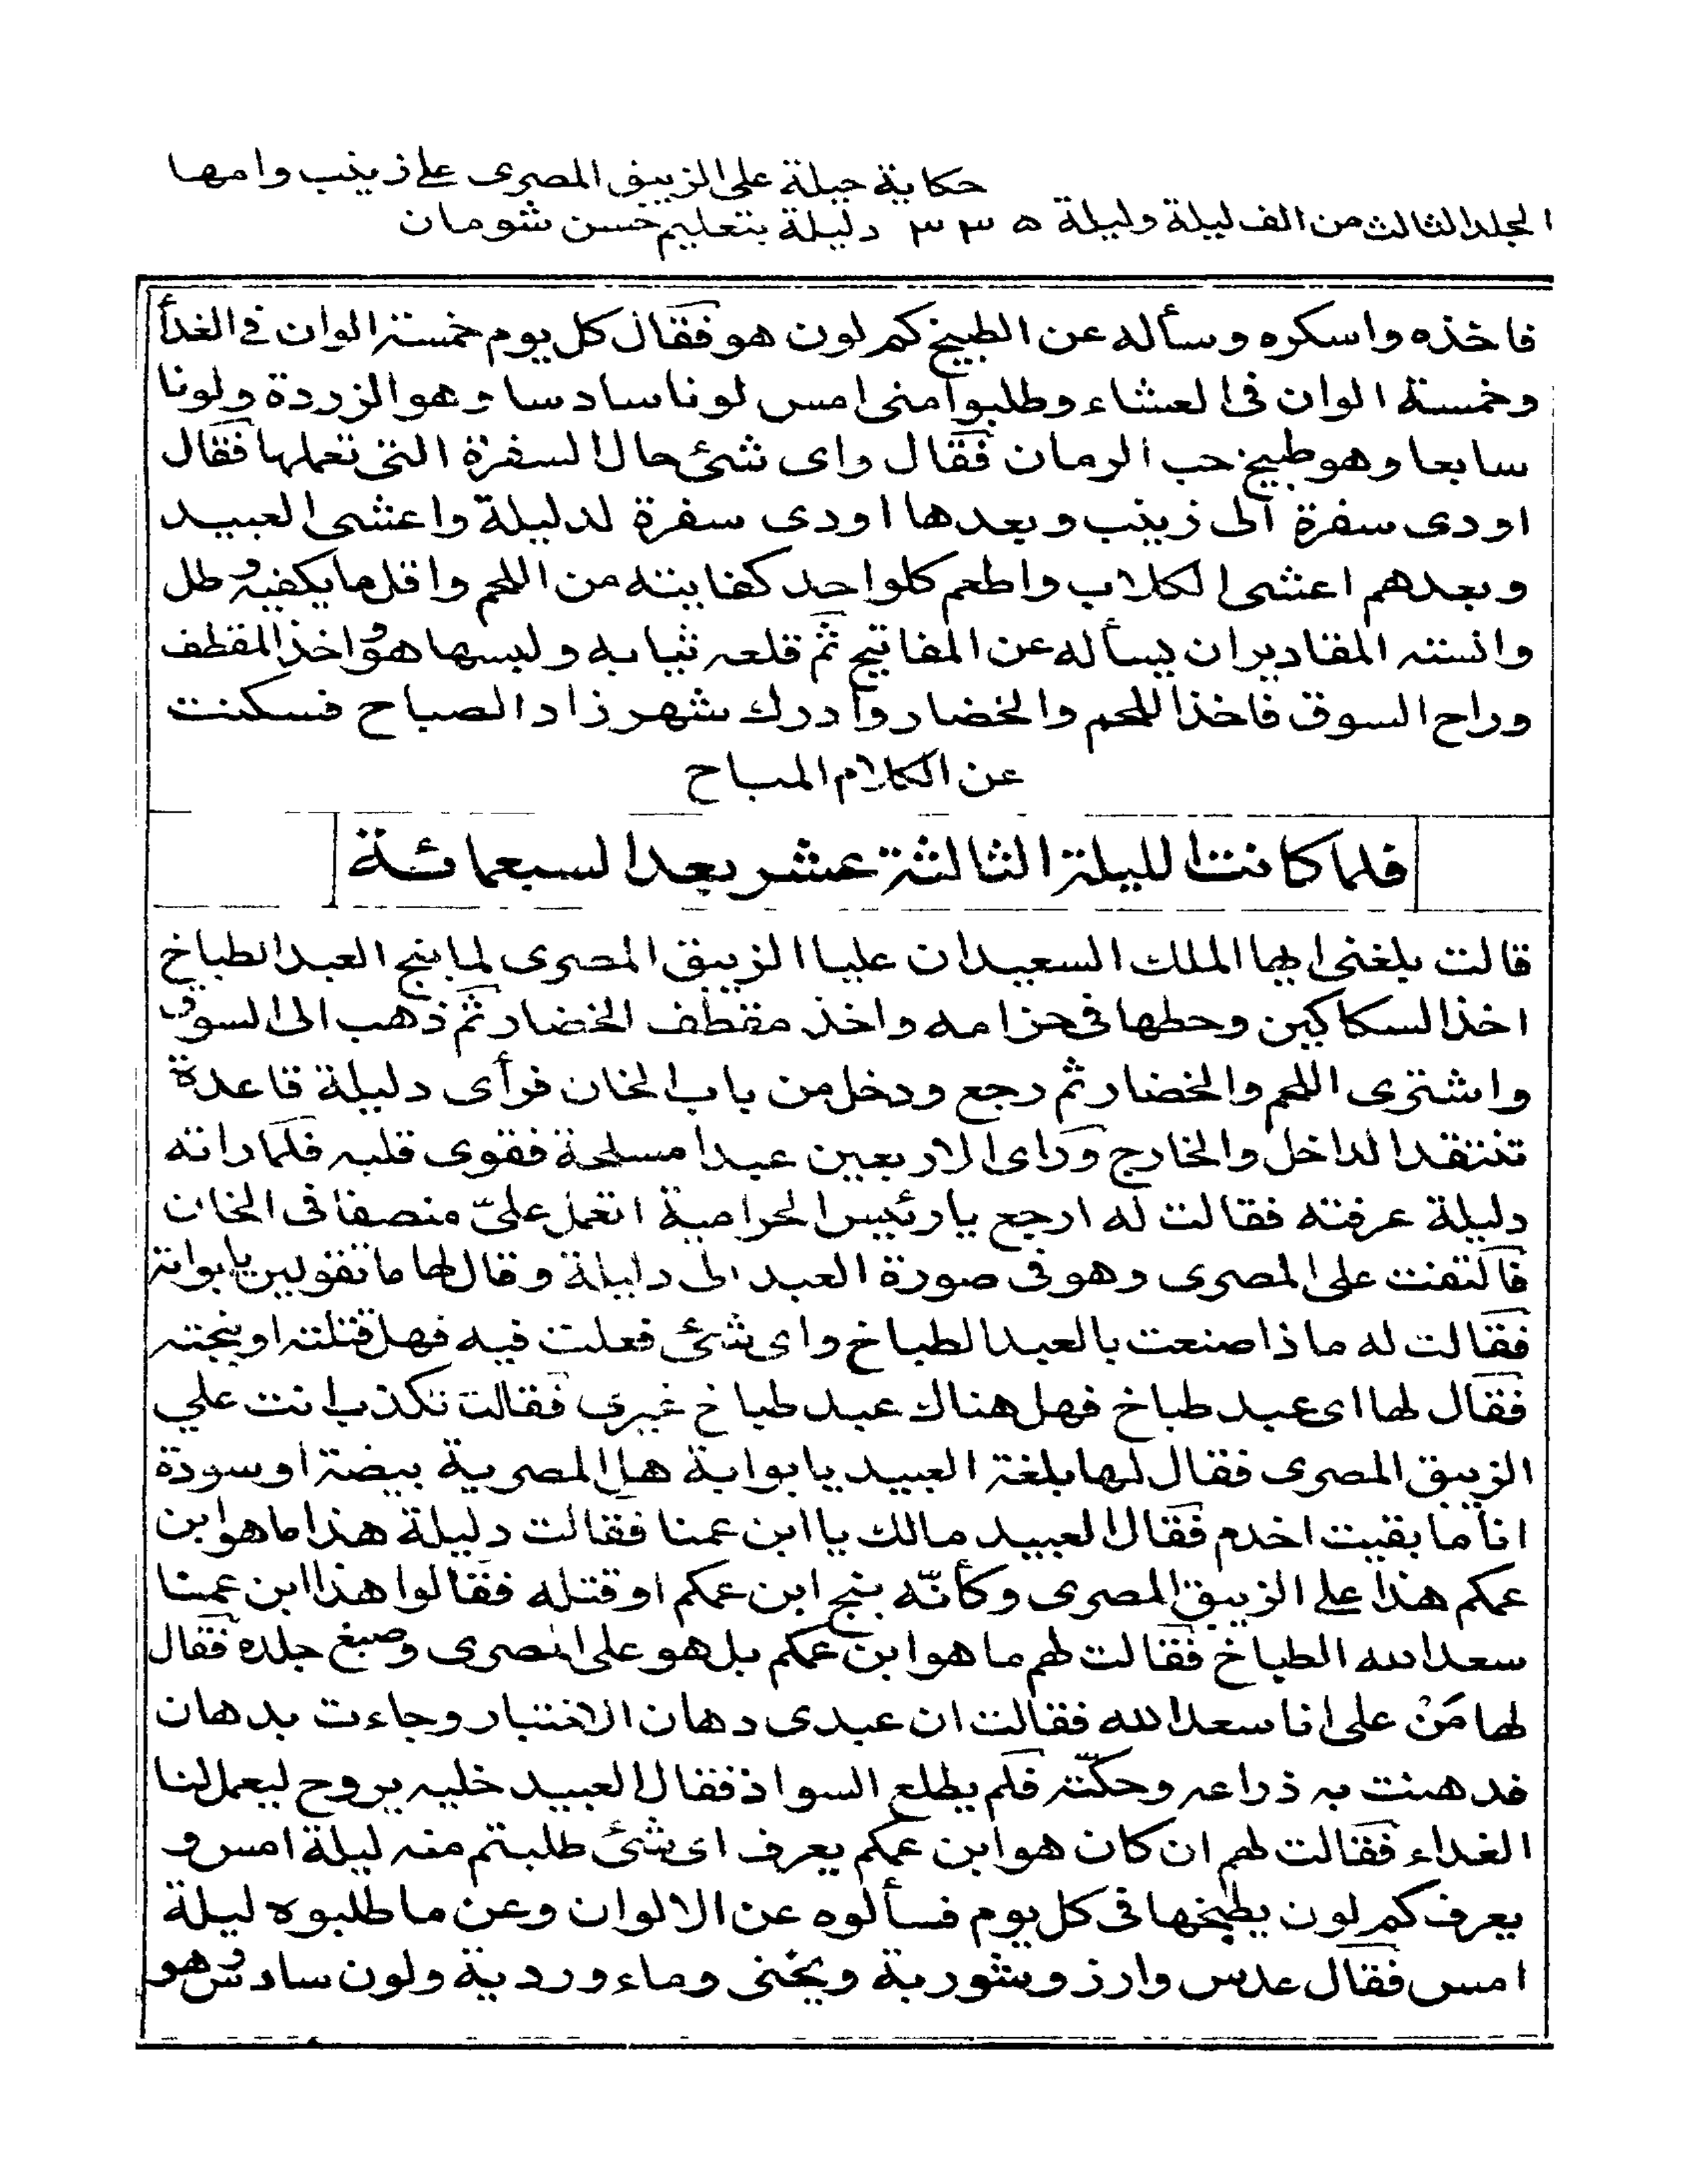 حكاية حيلة على الزيبق المصرى على زينب وامها
المجلد الثالث من الف ليلة وليلة ٣٣٥ دليلة بتعليم حسن شومان
فاخذه واسكره وسأله عن الطبيخ كم لون هو فقال كل يوم خمسة الوان فى الغدأ
وخمسة الوان فى العشاء وطلبوا منى امس لونا سادسا وهو الزردة ولونا
سابعا وهو طبيخ حب الرمان فقال واى شئ حال السفرة التى تعملها فقال
اودى سفرة الى زينب وبعدها اودى سفرة لدليلة واعشى العبيد
وبعدهم اعشى الكلاب واطعم كلواحد كفايته من اللحم واقل ما يكفيه رطل
وانسته المقادير ان يسأله عن المفاتيح ثم قلعه ثيابه ولبسها هو واخذ المقطف
وراح السوق فاخذ اللحم والخضار وادرك شهرزاد الصباح فسكتت
عن الكلام المباح
فلما كانت الليلة الثالثة عشر بعد السبعمائة
قالت بلغنى ايها الملك السعيد ان عليا الزيبق المصرى لما بنج العبد الطباخ
اخذ السكاكين وحطها فى حزامه واخذ مقطف الخضار ثم ذهب الى السوق
واشترى اللحم والخضار ثم رجع ودخل من باب الخان فرأى دليلة قاعدة
تنتقد الداخل والخارج وراى الاربعين عبدا مسلحة فقوى قلبه فلما راته
دليلة عرفته فقالت له ارجع يا رئيس الحرامية اتعمل علىّ منصفا فى الخان
فالتفت على المصرى وهو فى صورة العبد الى دليلة وقال لها ما تقولين يا بوابة
فقالت له ماذا صنعت بالعبد الطباخ واى شئ فعلت فيه فهل قتلته او بنجته
فقال لها اى عبد طباخ فهل هناك عبد طباخ غيرى فقالت تكذب انت علي
الزيبق المصرى فقال لها بلغة العبيد يا بوابة هل المصرية بيضة او سودة
انا ما بقيت اخدم فقال العبيد مالك يا ابن عمنا فقالت دليلة هذا ما هو ابن
عمكم هذا على الزيبق المصرى وكأنّه بنج ابن عمكم او قتله فقالوا هذا ابن عمنا
سعد الله الطباخ فقالت لهم ما هو ابن عمكم بل هو على المصرى وصبغ جلده فقال
لها مَنْ على انا سعد الله فقالت ان عبدى دهان الاختبار وجاءت بدهان
فدهنت به ذراعه وحكّته فلم يطلع السواد فقال العبيد خليه يروح ليعمل لنا
الغداء فقالت لهم ان كان هو ابن عمكم يعرف اى شئ طلبتم منه ليلة امس و
يعرف كم لون يطبخها فى كل يوم فسألوه عن الالوان وعن ما طلبوه ليلة
امس فقال عدس وارز وشوربة ويخنى وماء وردية ولون سادس وهو